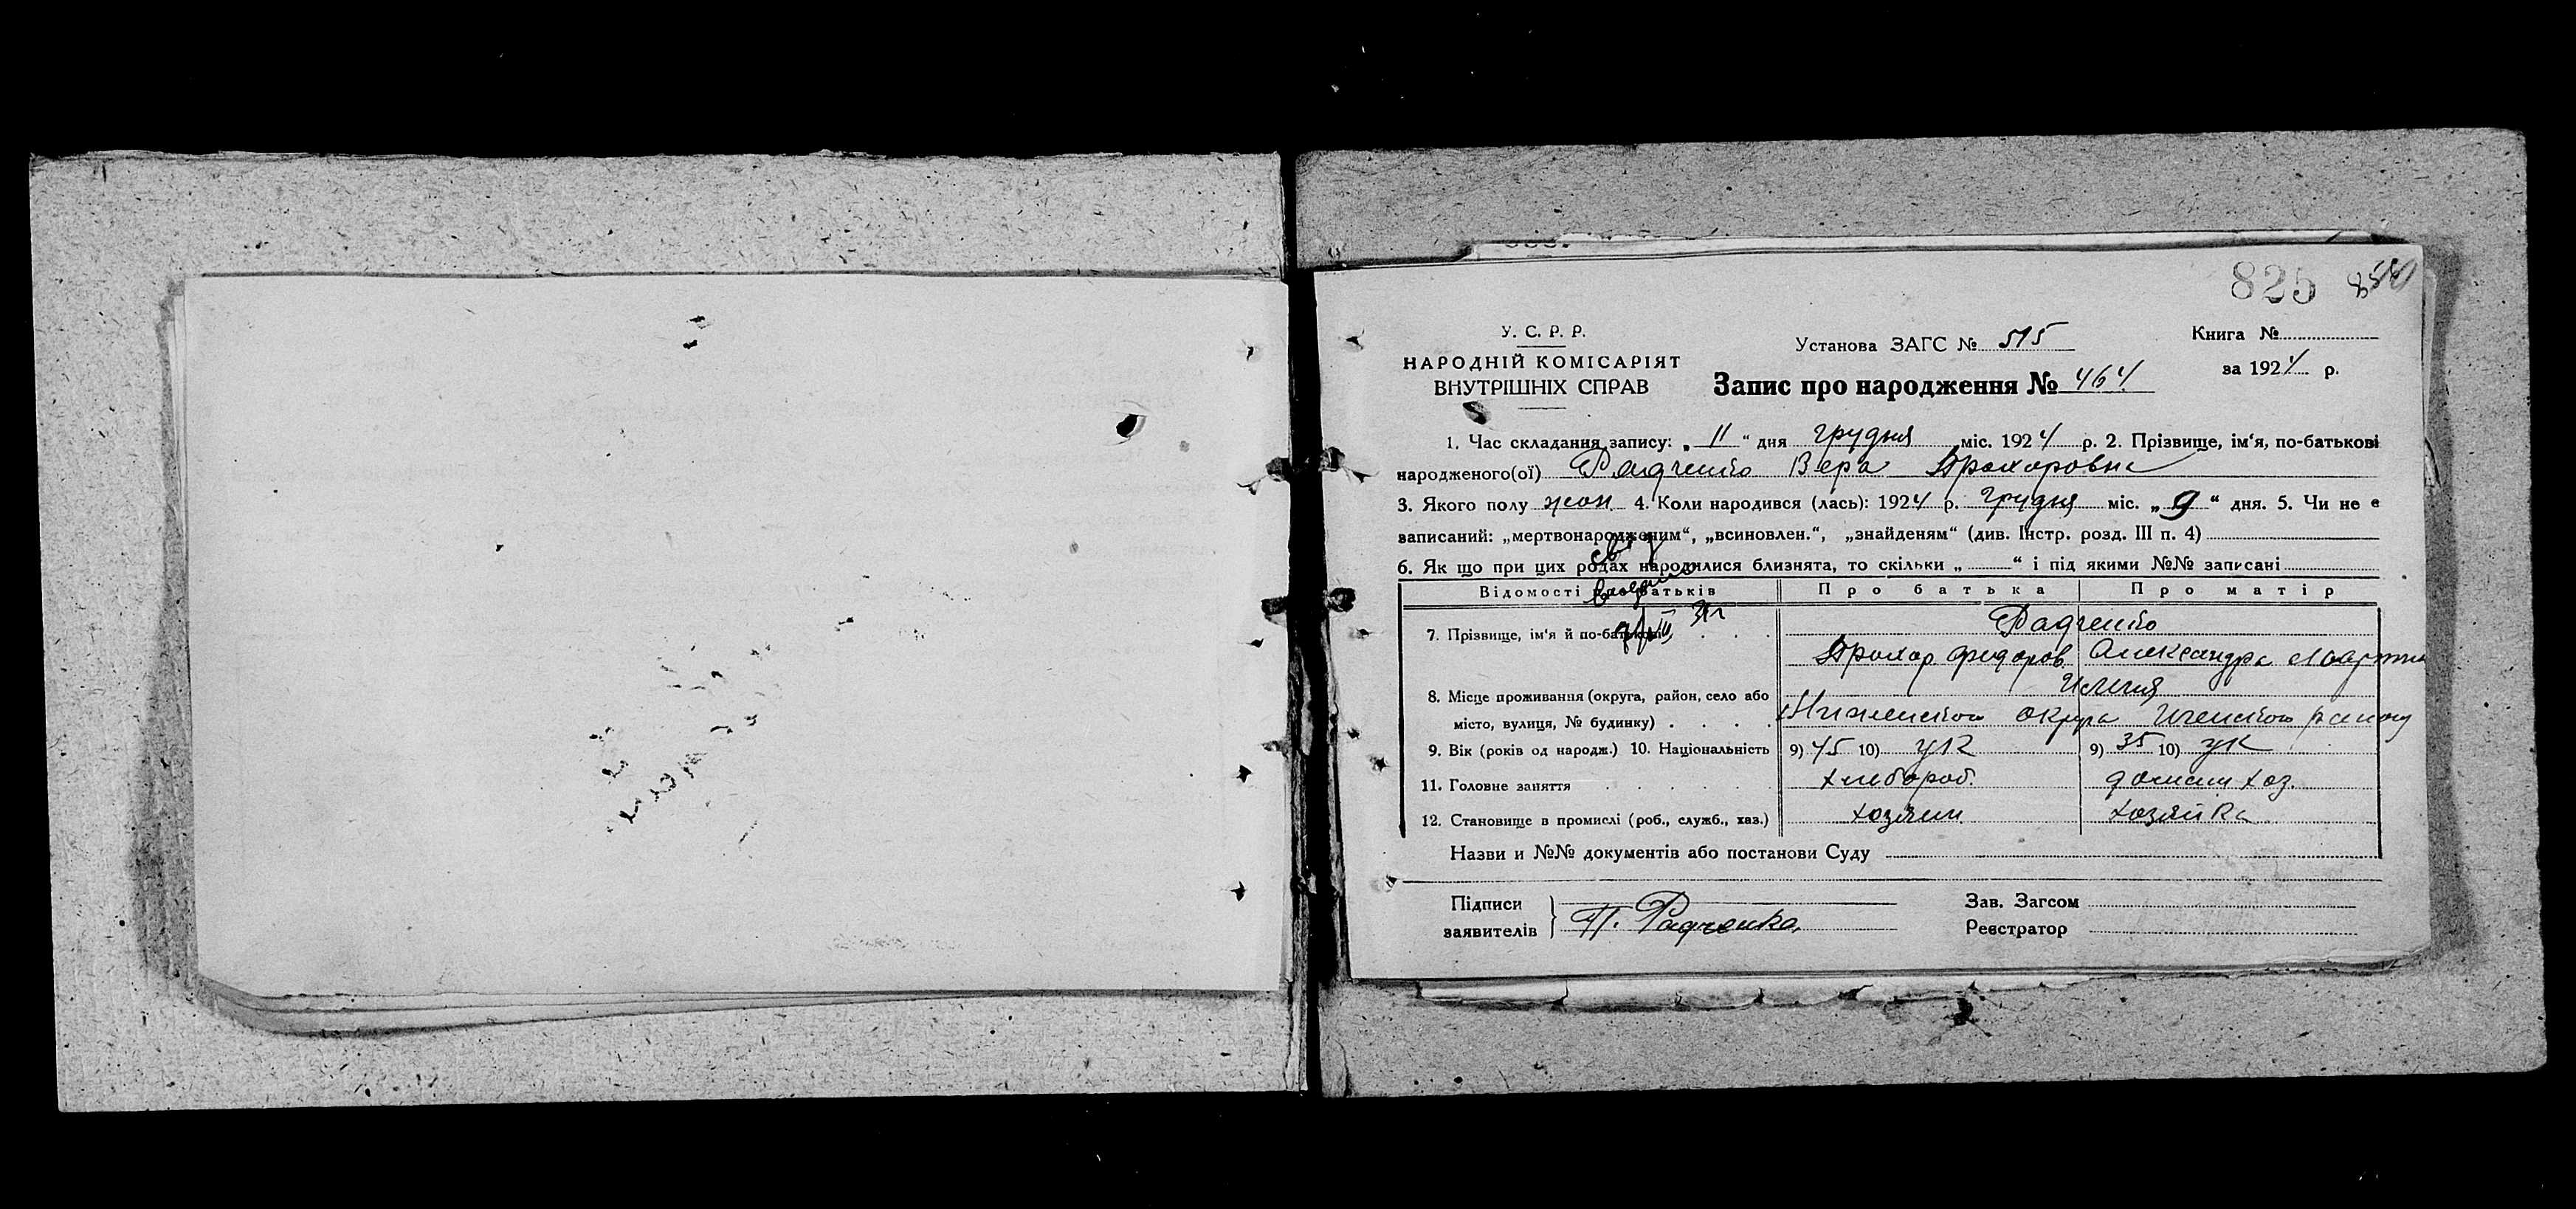 825 850
У. С. Р. Р.
НАРОДНІЙ КОМІСАРІЯТ
ВНУТРІШНІХ СПРАВ
Установа ЗАГС № 515
Запис про народження № 464
Книга №
за 1924 р.
1. Час складання запису: „ 11 “ дня грудня міс. 1924 р. 2. Прізвище, ім‘я, по-батькові
народженого(ої) Радченко Вера Прохоровна
3. Якого полу жон. 4. Коли народився (лась): 1924 р. грудня міс. „ 9 “ дня. 5. Чи не є
записаний: „мертвонародженим“, „всиновлен.“, „знайденям“ (див. Інстр. розд. III п. 4)
6. Як що при цих родах народилися близнята, то скільки „ “ і під якими №№ записані
Відомості про батьків Про батька Про матір
7. Прізвище, ім‘я й по-батькові Радченко
Прохор Федоров. Александра Мартин
8. Місце проживання (округа, район, село або
місто, вулиця, № будинку) Ніженської округа Іченского району
9. Вік (років од народж.) 10. Національність 9) 45 10) ук 9) 35 10) ук
11. Головне заняття хлебороб. домаш хоз.
12. Становище в промислі (роб., служб., хаз.) хозяин хозяйка
Назви и №№ документів або постанови Суду
Підписи
заявителів П. Радченко
Зав. Загсом
Реєстратор